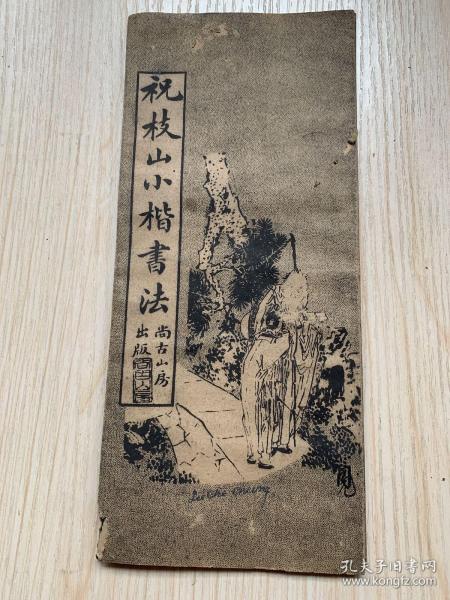 祝枝山小楷書法
尚古山房
出版
Lee Che Cheong
孔夫子旧书网
www.kongfz.com